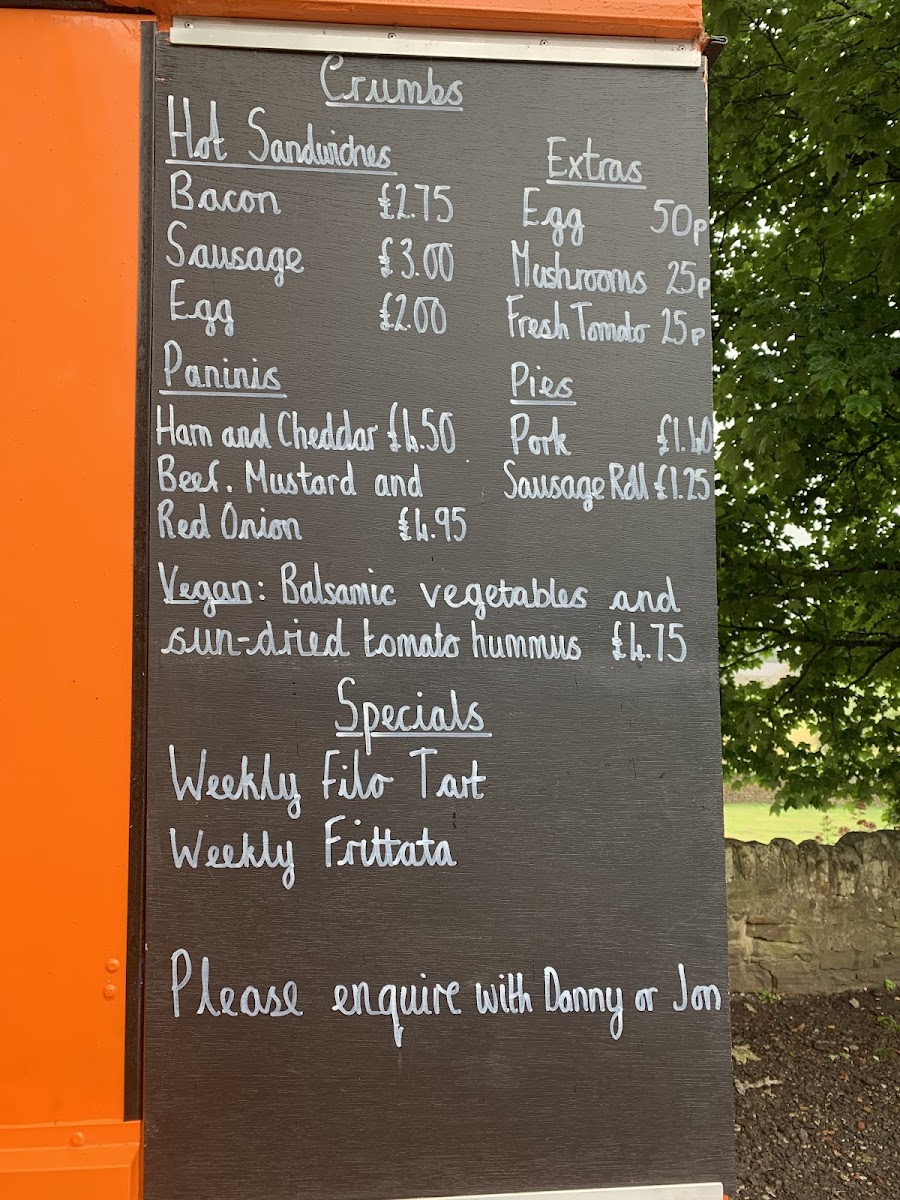 Crumbs
Hot Sandwiches
Bacon £2.75
Sausage £3.00
Egg £2.00
Extras
Egg 50p
Mushrooms 25p
Fresh Tomato 25p
Paninis
Ham and Cheddar £4.50
Beef, Mustard and
Red Onion £4.95
Pies
Pork £1.40
Sausage Roll £1.25
Vegan: Balsamic vegetables and
sun-dried tomato hummus £4.75
Specials
Weekly Filo Tart
Weekly Frittata
Please enquire with Danny or Jon